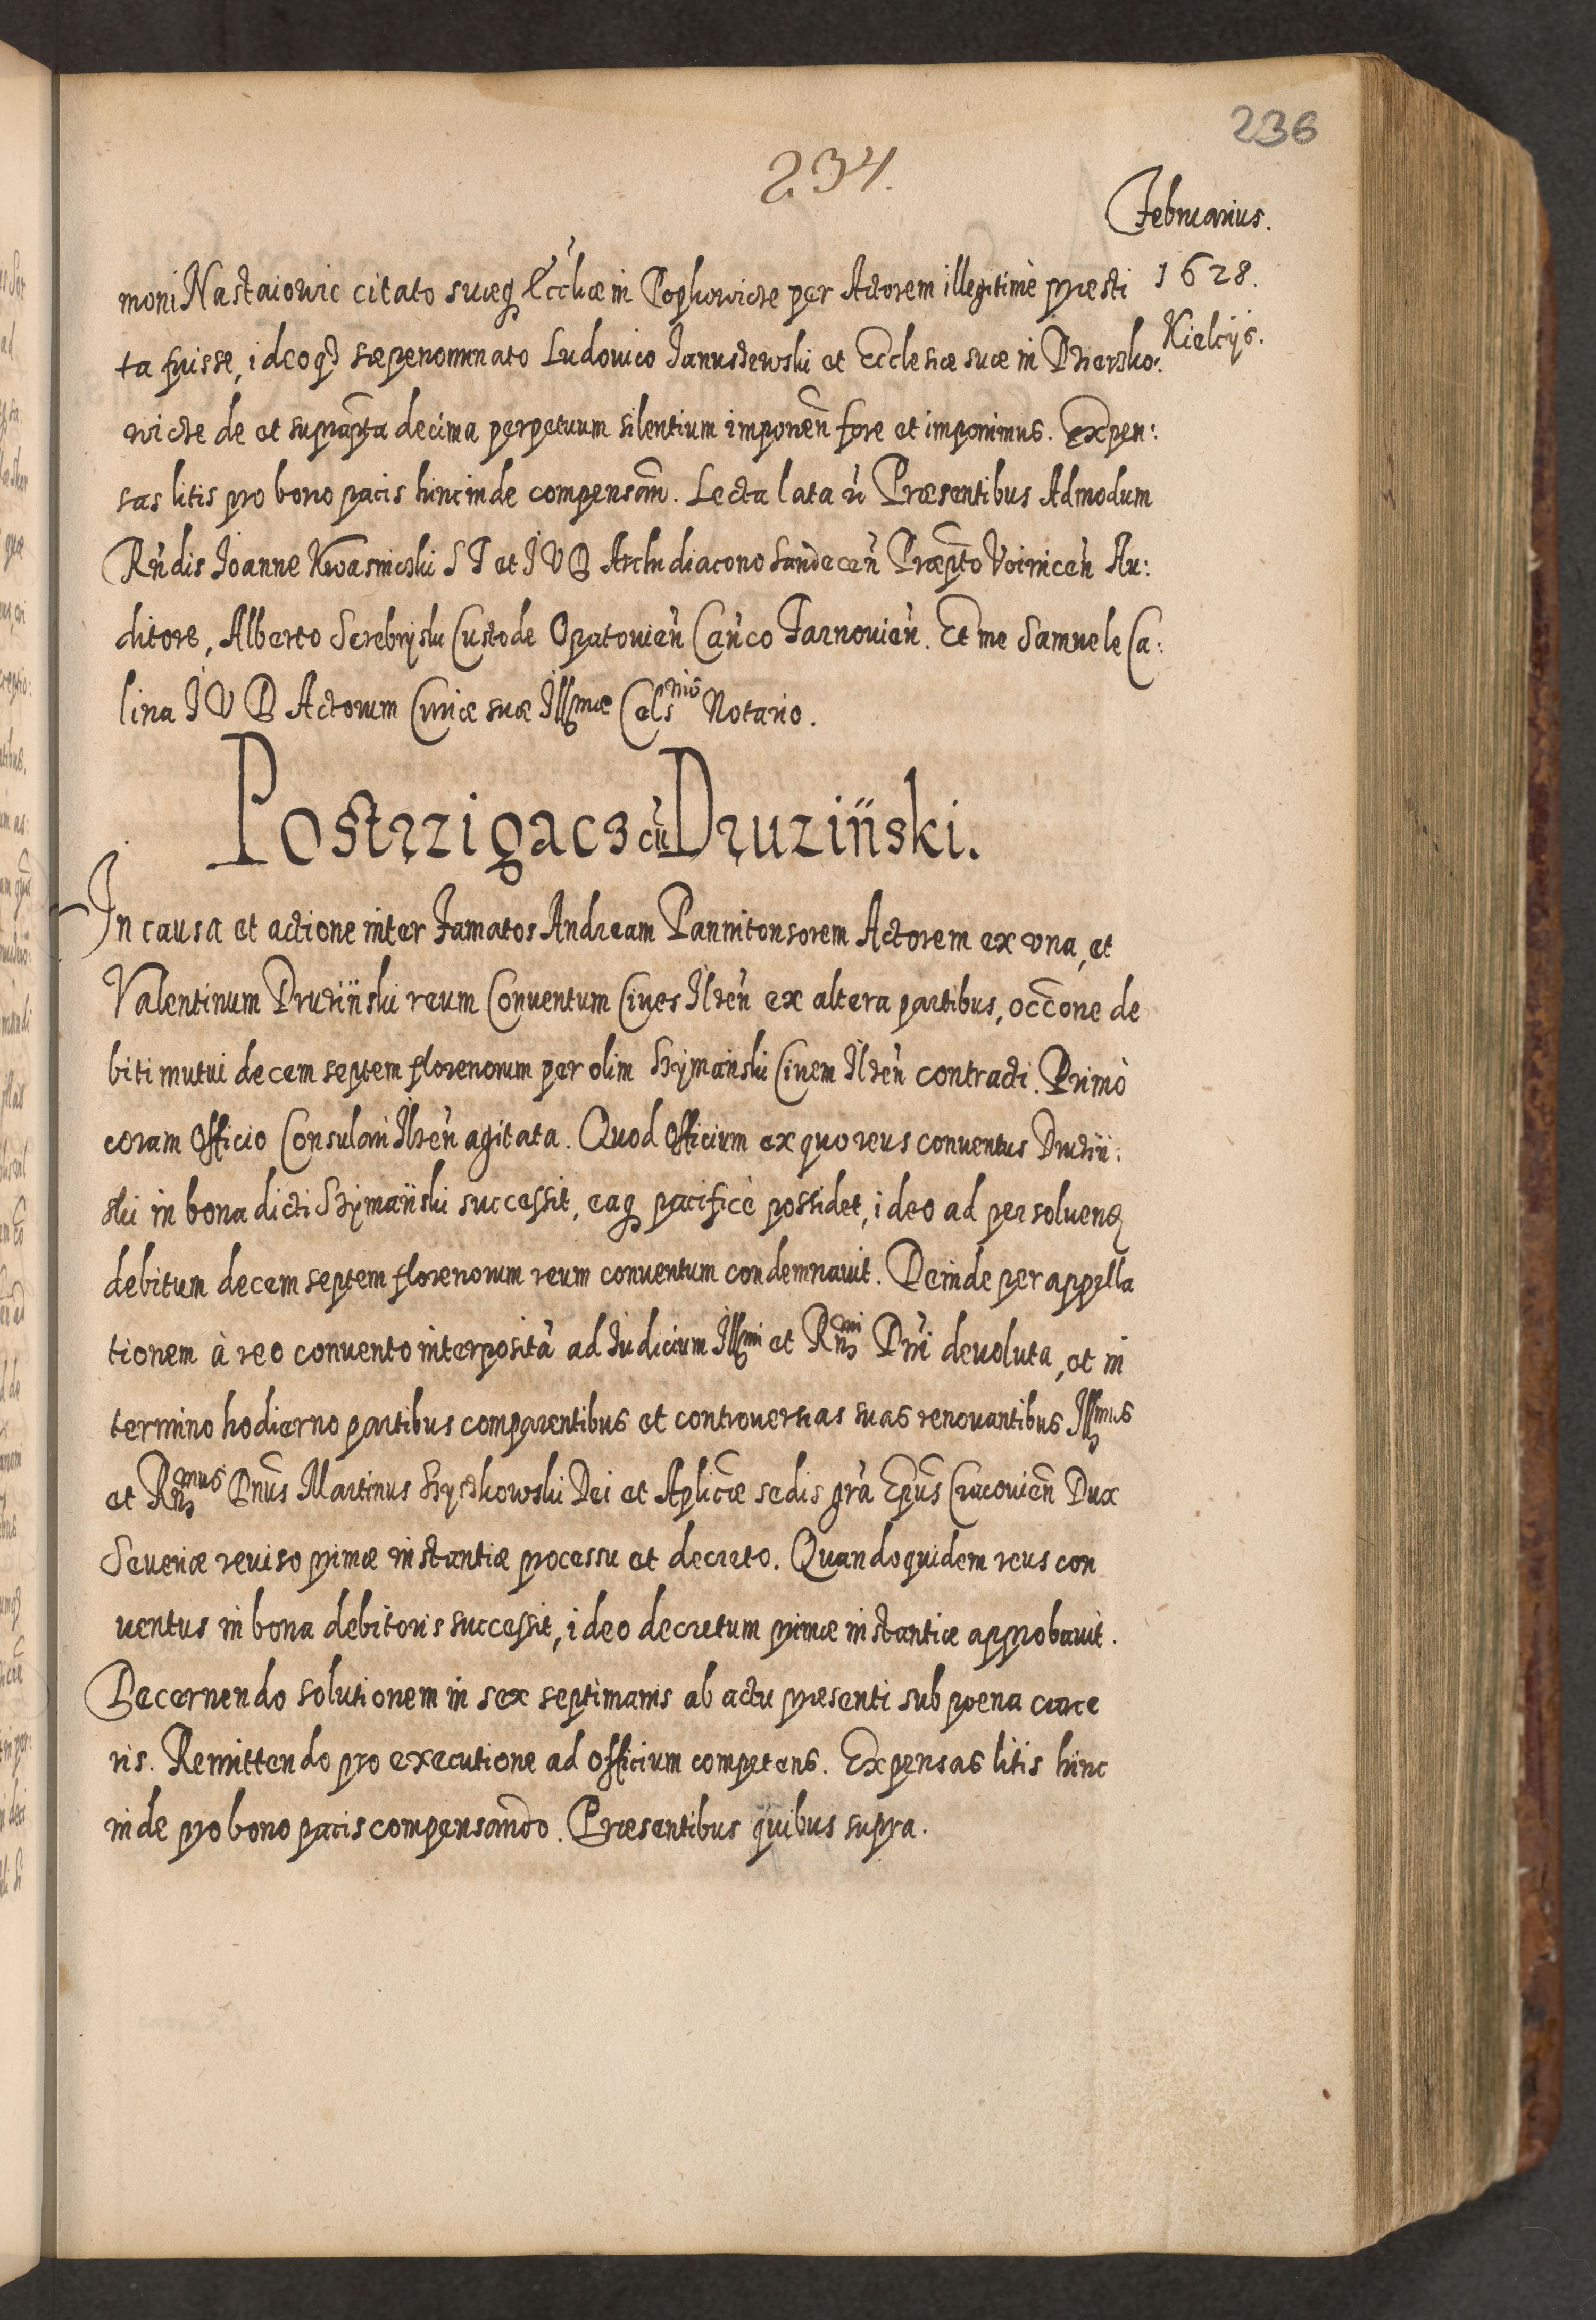 236
234.
Februarius.
1628.
Kielcijs.
moni Nastaiowic citato suæq Ecclìæ in Popkowicze per Actorem illegitimè præsti
ta fuisse, ideoq sæpenominato Ludovico Januszewski et Ecclesiæ suæ in Dzierzko:
wicze de et suprapta decima perpetuum silentium imponen̄ fore et imponimus. Expen:
sas litis pro bono pacis hincinde compensam̄. Lecta lata ū Præsentibus Admodum
Rn̄dis Joanne Kwasnicski S T et J V D Archidiacono Sandecen̄ Præp̄to Voinicen̄ Au:
ditore, Alberto Serebrÿski Custode Opatovien̄ Can̄co Tarnovien̄. Et me Samuele Ca:
lina J V D Actorum Curiæ suæ Illmæ Cels nis Notario.
Postrzigacz cū Druziński.
In causa et actione inter Famatos Andream Pannitonsorem Actorem ex vna, et
Valentinum Druziński reum Conventum Cives Ilzen̄ ex altera partibus, occ̄one de
biti mutui decem septem florenorum per olim Szÿmański Civem Ilzen̄ contracti. Primò
coram Officio Consulari Ilzen̄ agitata. Quod Officium ex quo reus conventus Druziń:
ski in bona dicti Szÿmański successit, eaq pacificè possidet, ideo ad persoluen
debitum decem septem florenorum reum conventum condemnavit. Deinde per appella
tionem à reo convento interposità ad Iudicium Illmi et Rn̄mi Dn̄i devoluta, et in
termino hodierno partibus comparentibus et controversias suas renovantibus Illmus
et Rn̄mus Dn̄us Martinus Szÿszkowski Dei et Aplicæ sedis grā Epūs Cracovien̄ Dux
Severiæ reviso primæ instantiæ processu et decreto. Quandoquidem reus con
ventus in bona debitoris successit, ideo decretum primæ instantiæ approbavit.
Decernendo solutionem in sex septimanis ab actu præsenti sub poena carce
ris. Remittendo pro executione ad Officium competens. Expensas litis hinc
inde pro bono pacis compensando. Præsentibus quibus supra.